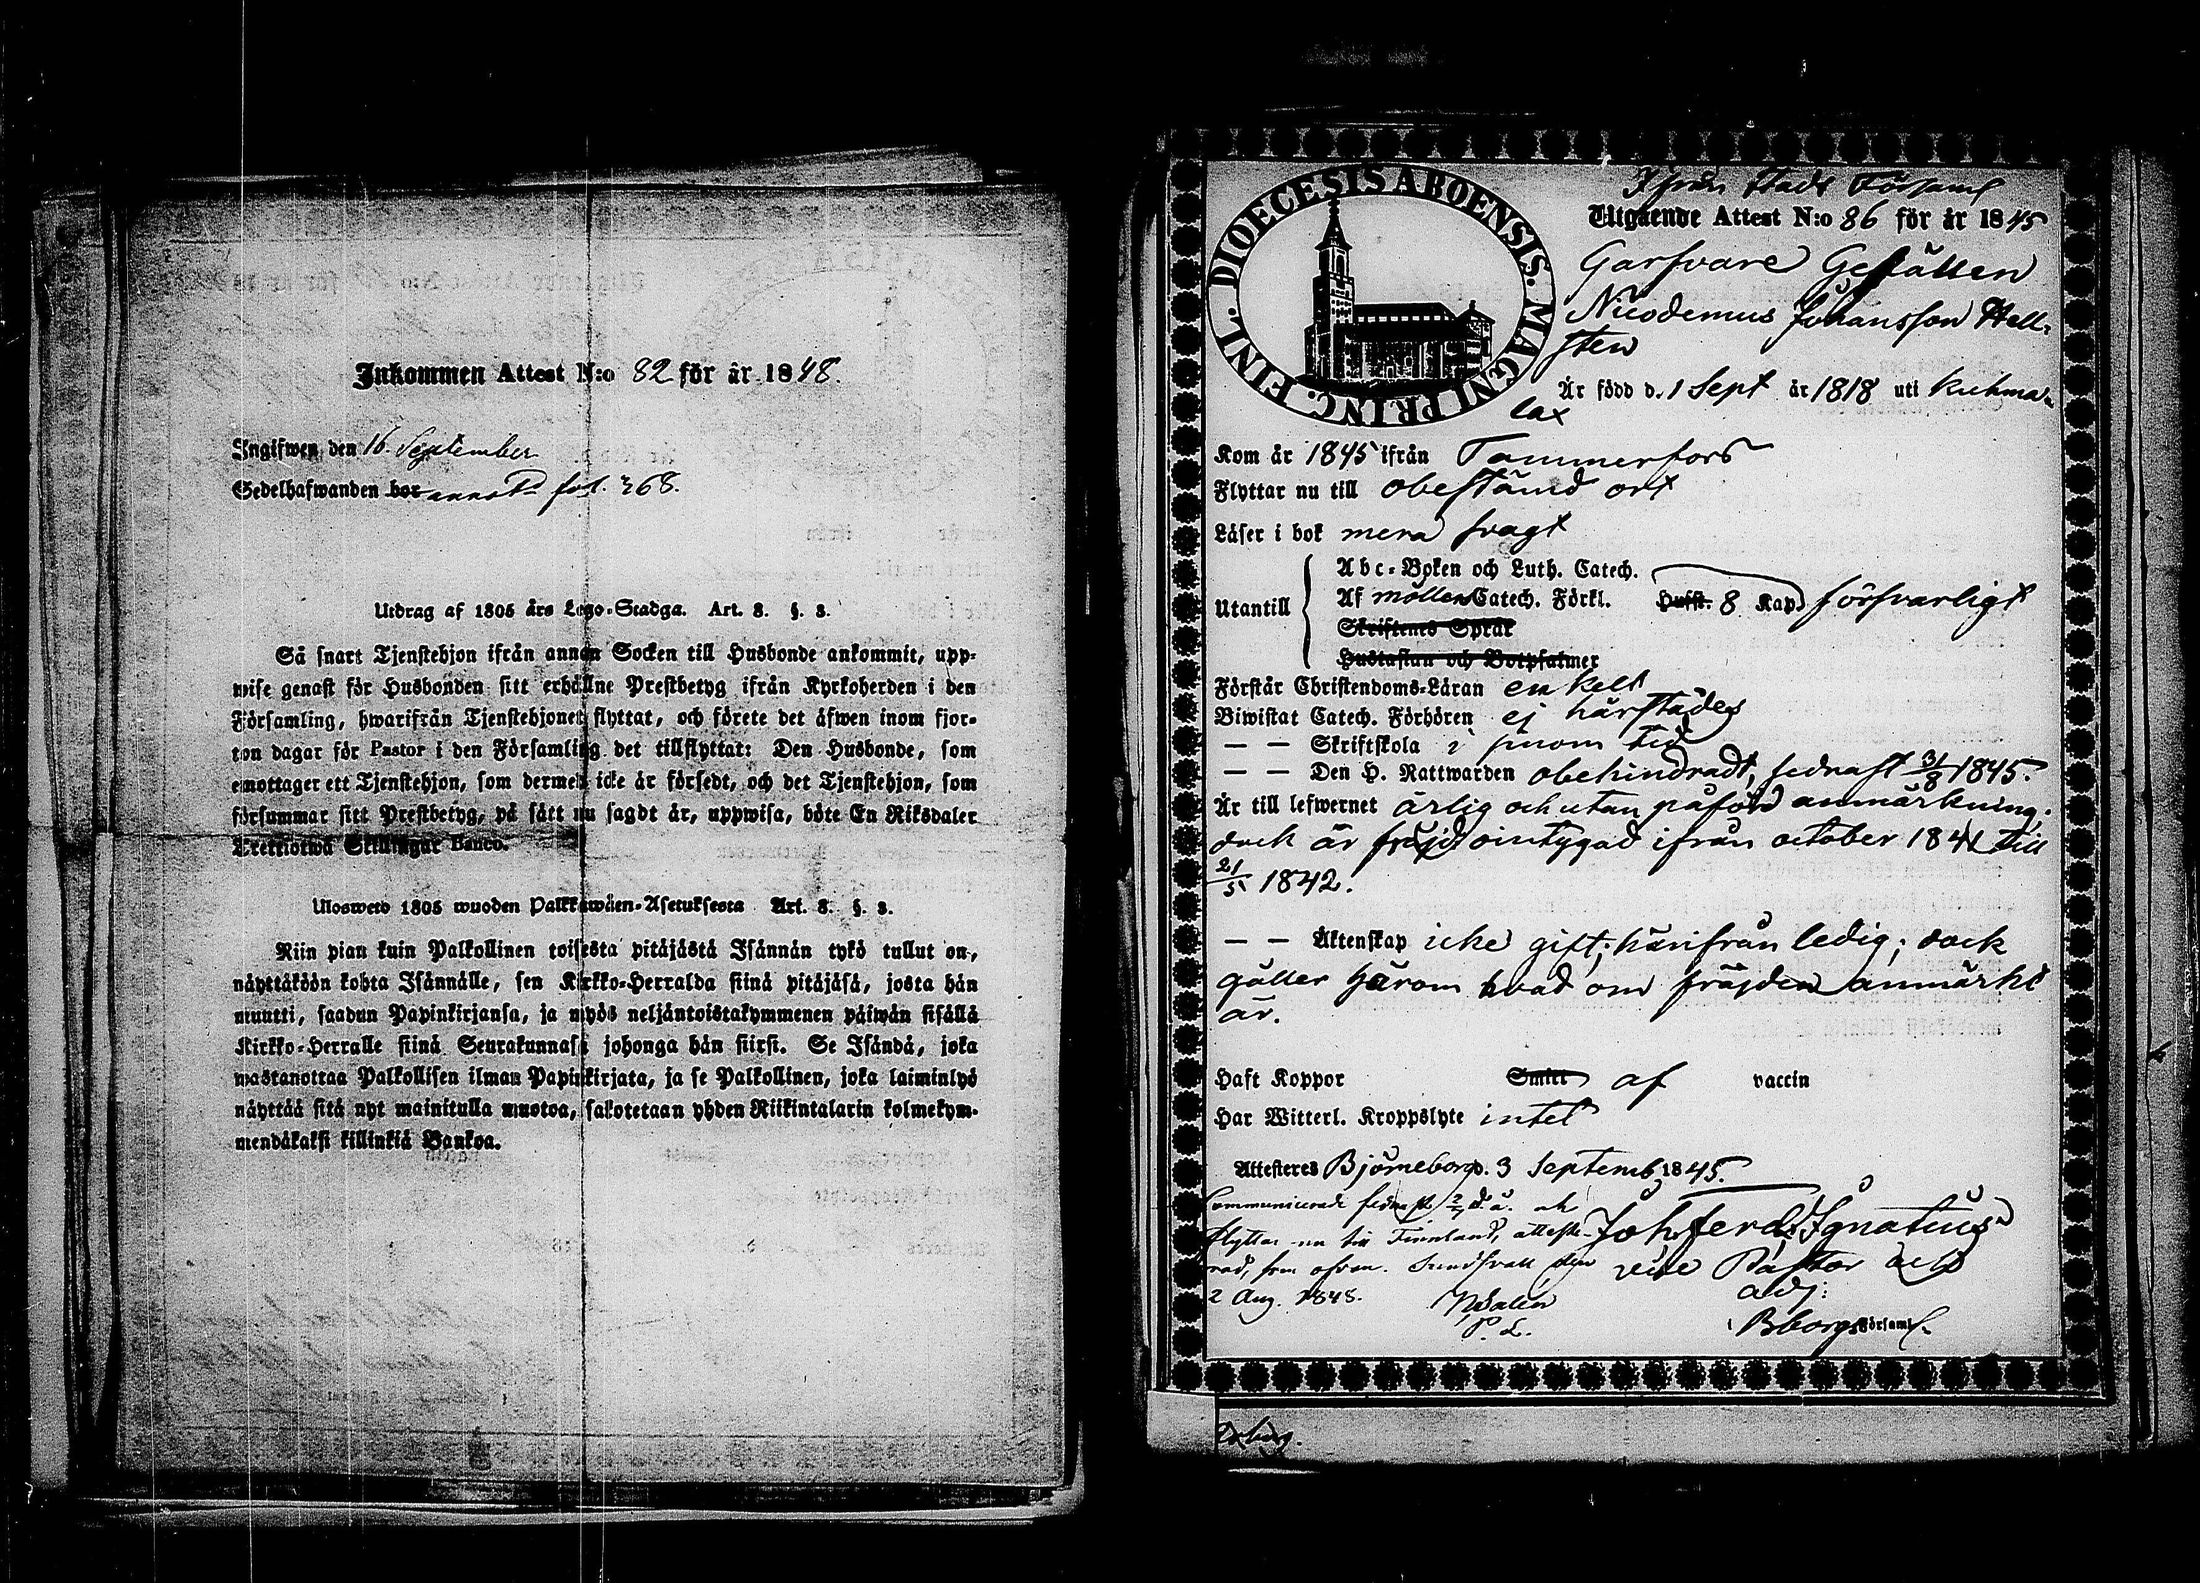 Inkommen Attest N:o 82 för år 1848.
Ingifwen den 16. September
Sedelhafwanden bor annot. fol. 268.
Utdrag af 1805 års Lego-Stadga. Art. 8. §. 3.
Så snart Tjenstehjon ifrån annan Socken till Husbonde ankommit, upp-
wise genast för Husbonden sitt erhållne Prestbetyg ifrån Kyrkoherden i den
Församling, hwarifrån Tjenstehjonet flyttat, och förete det äfwen inom fjor-
ton dagar för Pastor i den Församling det tillflyttat: Den Husbonde, som
emottager ett Tjenstehjon, som dermed icke är försedt, och det Tjenstehjon, som
försummar sitt Prestbetyg, på sätt nu sagdt är, uppwisa, böte En Riksdaler
Trettiotwå Skillingar Banco.
Uloswetö 1805 wuoden Palkkawäen-Asetuksesta Art. 8. §. 3.
Niin pian kuin Palkollinen toisesta pitäjästä Isännän tykö tullut on,
näyttäköön kohta Isännälle, sen Kirkko-Herralda siinä pitäjäsä, josta hän
muutti, saadun Papinkirjansa, ja myös neljäntoistakymmenen päiwän sisällä
Kirkko-Herralle siinä Seurakunnasa johonga hän siirsi. Se Isändä, joka
wastanottaa Palkollisen ilman Papinkirjata, ja se Palkollinen, joka laiminlyö
näyttää sitä nyt mainitulla muotoa, sakotetaan yhden Riikintalarin kolmekym-
mendäkaksi killinkiä Bankoa.
DIOECESIS ABOENSIS. MAGNI PRINC. FINL.
Ifrån Stads Församl
Utgående Attest N:o 86 för år 1845
Garfvare Gesällen
Nicodemus Johansson Hell-
sten
Är född d. 1 Sept år 1818 uti Kuhma-
lax
Kom år 1845 ifrån Tammerfors
Flyttar nu till obestämd ort
Läser i bok mera svagt
Utantill
Abc-Boken och Luth. Catech.
Af möllers Catech. Förkl. Hufst. 8 Kap. försvarligt
Skriftenes Språk
Hustaflan och Botpsalmer
Förstår Christendoms-Läran enkelt
Biwistat Catech. Förhören ej härstädes
— — Skriftskola i sinom tid
— — Den H. Nattwarden obehindradt, sednast 31/8 1845.
Är till lefwernet ärlig och utan påförd anmärkning;
dock är fräjd ointygad ifrån october 1841 till
21/5 1842.
— — Äktenskap icke gift; härifrån ledig; dock
gäller härom hvad om fräjden anmärkt
är.
Haft Koppor Smitt af vaccin
Har Witterl. Kroppslyte intet
Attesteres Björneborg d. 3 Septemb. 1845.
Communicerade sednast 2/7 d. å. och
flyttar nu till Finnland, atteste-
rad, som ofvan. Sundsvall den
2 Aug. 1848.
P. L.
Joh. Ferd. Ignatius
vice Pastor och
adj:
Bborgs Församl.